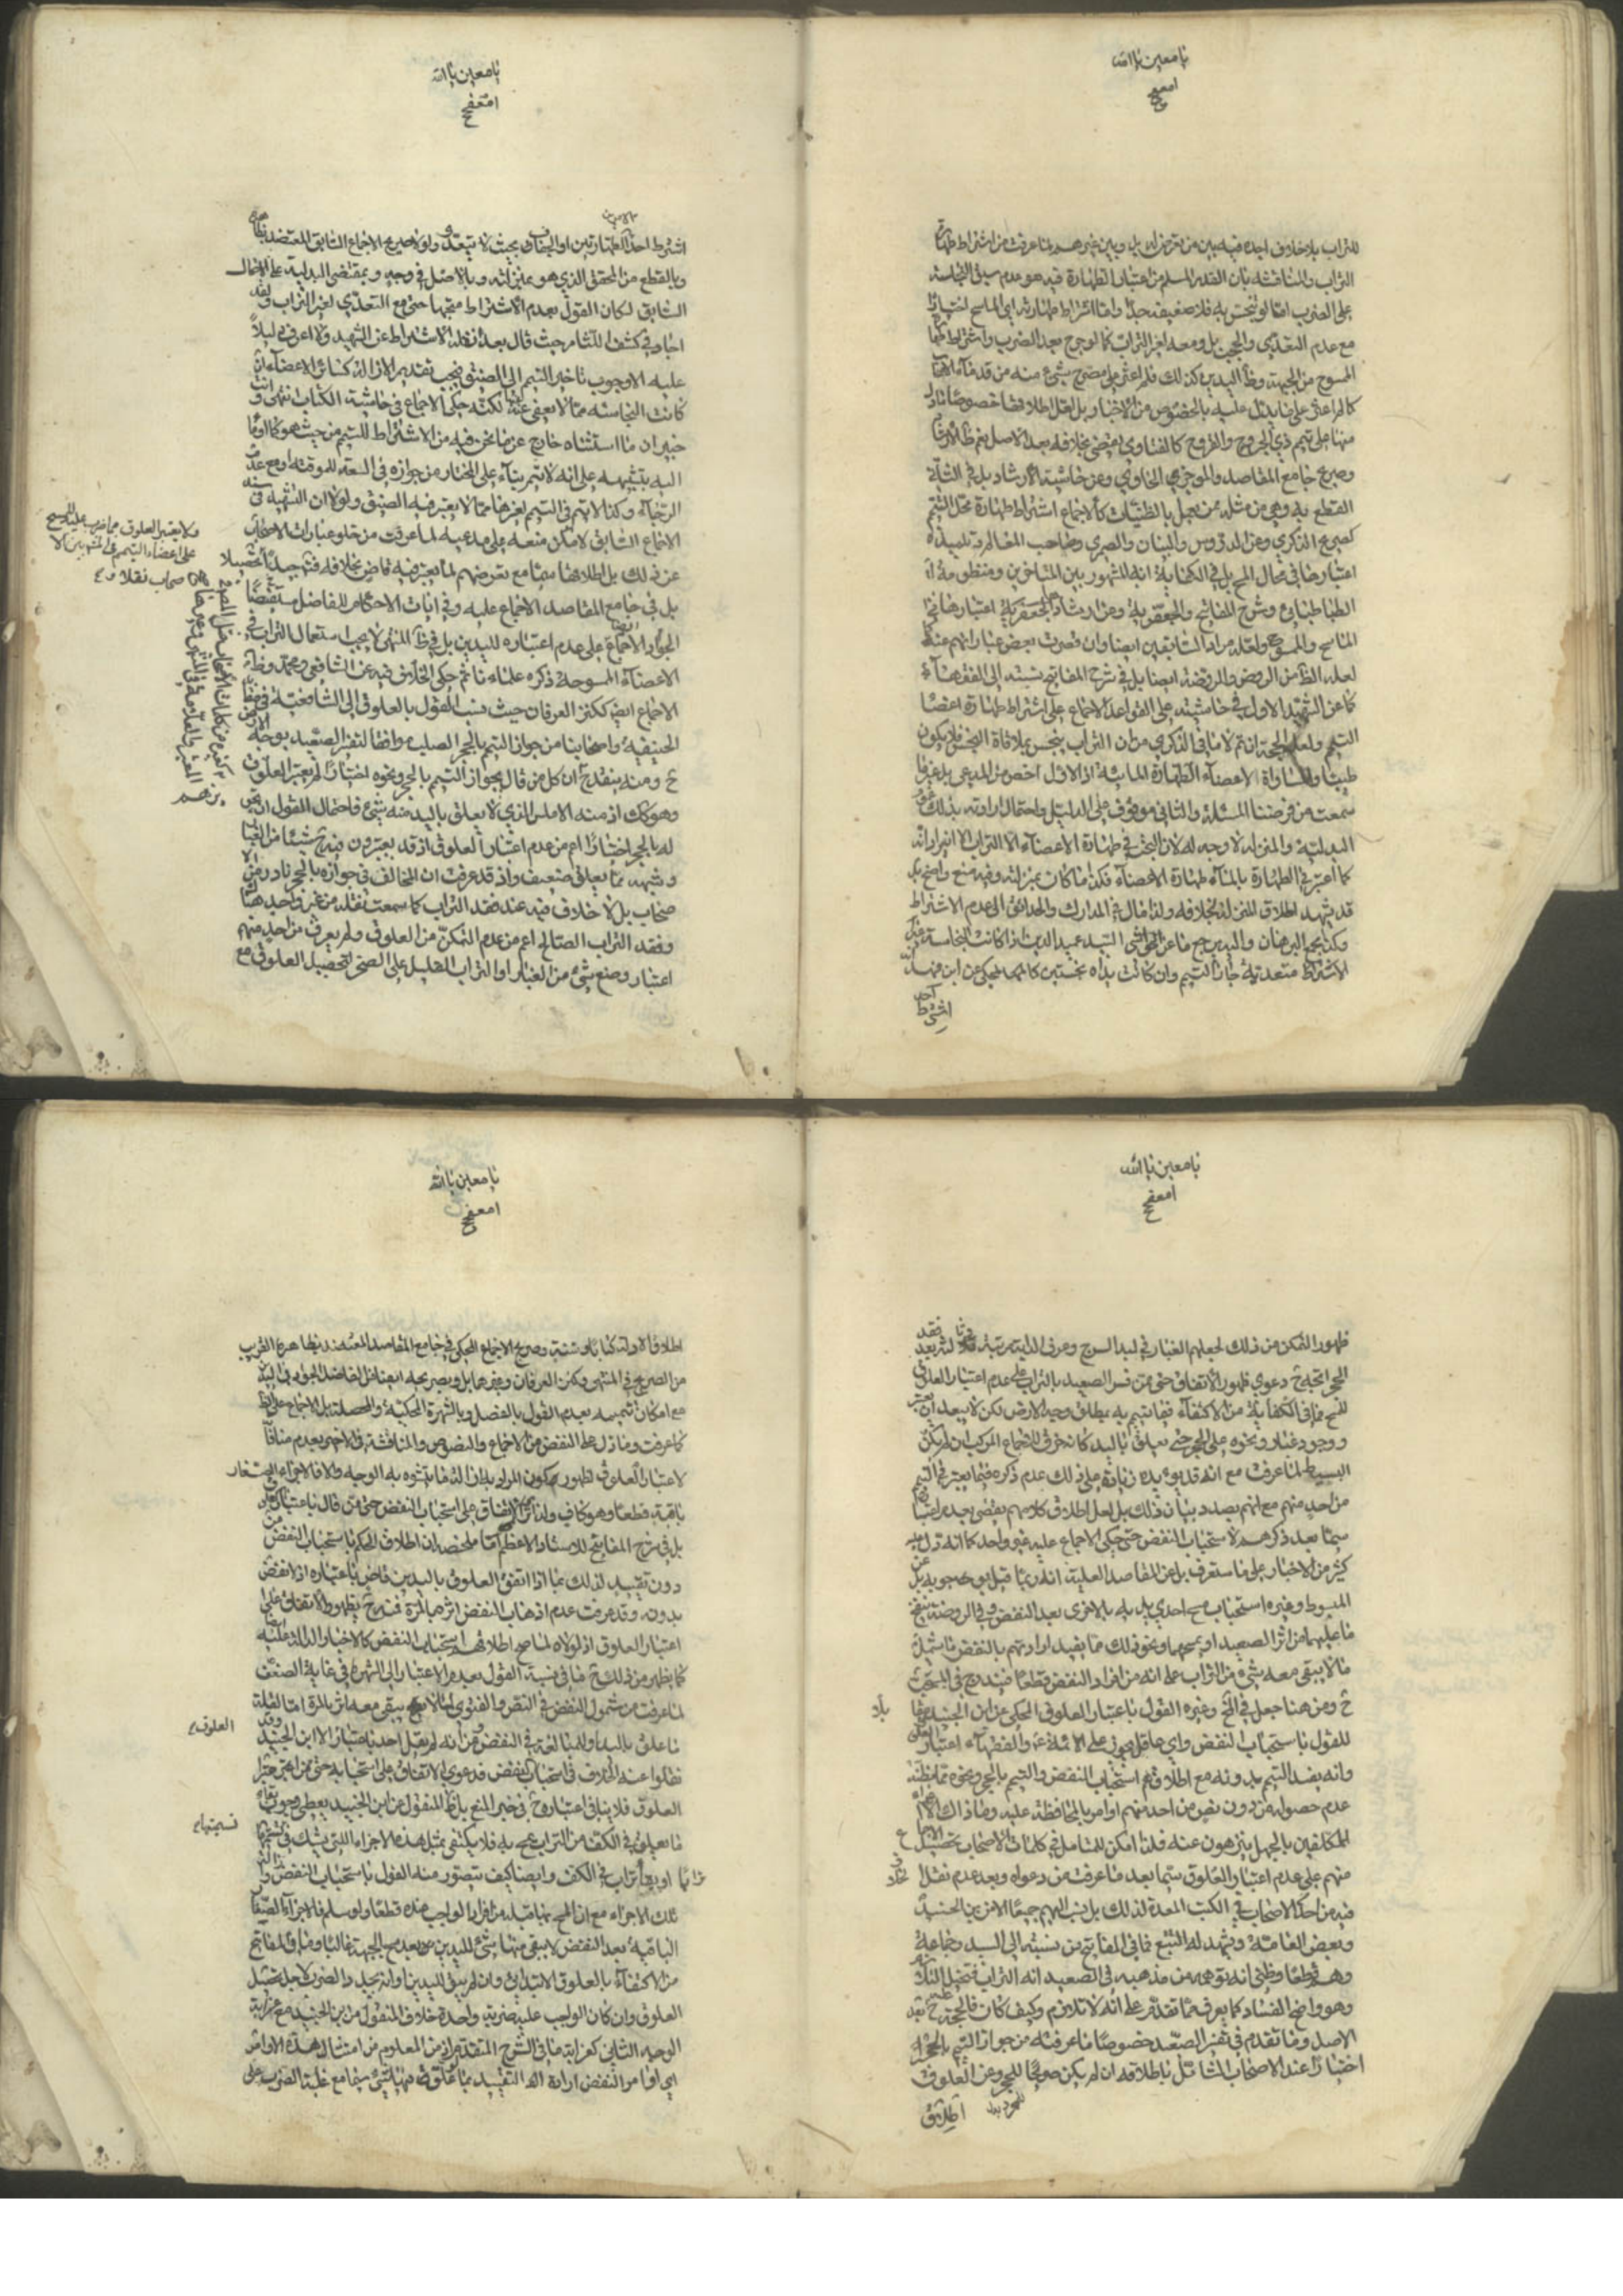 يا معين يا الله
للتراب بلا خلاف اجده فيه بين من تعرض له بل وبين غيرهم لما عرفت من اشتراط طهارة
التراب والمناقشة بأن القدر المسلم من اعتبار الطهارة فيه هو عدم سبق النجاسة
على الضرب امّا لو نجس به فلا ضعيفة جدّاً وامّا اشتراط طهارته اي الماسح اختياراً
مع عدم التعدّي والحجب بل ومعه لغير التراب كما لو جرح بعد الضرب واشتراط طهارة
الممسوح من الجبهة وظاهر اليدين كذلك فلم اعثر على مصرح بشيء منه من قدماء الأصحاب
كما لم اعثر على ما يدل عليه بالخصوص من الاخبار بل لعل اطلاقها خصوصاً ما دل
منها على تيمم ذي الجروح والقروح كالفتاوى يقضي بخلافه بعد الاصل نعم
وصريح جامع المقاصد والموجز الحاوي وعن حاشية الارشاد بل في الثلاثة
القطع به وهي من مثله ممن يعمل بالظنيات كالاجماع اشتراط طهارة محل التيمم
كصريح الذكرى وعن الدروس والبيان والصيمري وصاحب المعالم وتلميذه
اعتبارها في محال المسح بل في الكفاية انه المشهور بين المتأخرين ومنظومة
الطباطبائي وشرح المفاتيح والجعفرية وعن ارشاد الجعفرية اعتبارها في
الماسح والممسوح ولعله مراد السابقين ايضاً وان قصرت بعض عباراتهم عنه
لعله الظاهر من الروض والروضة ايضا بل في شرح المفاتيح نسبته الى الفقهاء
كما عن الشهيد الاول في حاشيته على القواعد الاجماع على اشتراط طهارة اعضاء
التيمم ولعله الحجة ان تم لا ما في الذكرى من ان التراب ينجس بملاقاة النجس فلا يكون
طيبا ولمساواة الاعضاء الطهارة المائية اذ الاول اخص من المدعى بل غير ما
سمعت من فرضنا المسئلة والثاني موقوف على الدليل واحتمال ارادته بذلك
البدلية والمنزلة لا وجه له لان البحث في طهارة الاعضاء لا التراب الا ان يراد انه
كما اعتبر في الطهارة بالماء طهارة الاعضاء فكذا ما كان بمنزلته وفيه منع واضح بل
قد يشهد اطلاق المنزلة بخلافه ولذا مال في المدارك والحدائق الى عدم الاشتراط
وكذا مجمع البرهان والسيد مع ما عن حواشي السيد عميد الدين اذا كانت النجاسة
الاشتراط متعدية جاز التيمم وان كانت يداه نجستين كالمحكي عن ابن فهد
اشترط
يا معين يا الله
اشترط احد الطهارتين او الجفاف بحيث لا يتعدّى ولولا صريح الاجماع السابق المعتضد
وبالقطع من المحقق الذي هو بمنزلته وبالاصل في وجه وبمقتضى البدلية على الاجمال
السابق لكان القول بعدم الاشتراط متجها حتى مع التعدّي لغير التراب ولقد
اجاد في كشف اللثام حيث قال بعد نقله الاشتراط عن الشهيد ولا اعرف دليلاً
عليه الا وجوب تأخير التيمم الى الضيق فيجب تقديم الازالة كسائر الاعضاء
كانت النجاسة ممّا لا يعفى عنه لكنّه حكى الاجماع في حاشية الكتاب انتهى وانت
خبير ان ما استثناه خارج عن ما نحن فيه من الاشتراط للتيمم من حيث هو كما اومأ
اليه بتنبيهه على انه لا يتم بناء على المختار من جوازه في السعة للموقتة او مع عدم
الرجاء وكذا لا يتم في التيمم لغيرها ممّا لا يعتبر فيه الضيق ولولا ان الشبهة في
الاجماع السابق لامكن منعه على مدعيه لما عرفت من خلو عبارات الاصحاب
عن ذلك بل اطلاقها سيما مع تعرضهم لما يعتبر فيه قاض بخلافه فتأمل جيداً
ولا يعتبر العلوق مما ضرب عليه للمسح
على اعضاء التيمم على المشهور بين الا
صحاب نقلا
بل في جامع المقاصد الاجماع عليه وفي ايات الاحكام للفاضل
الجواد الاجماع على عدم اعتباره لليدين بل في ظاهر المنتهى لا يجب استعمال التراب في
الاعضاء الممسوحة ذكره علماءنا ثم حكى الخلاف فيه عن الشافعي ومحمد وظاهره
الاجماع ايضاً ككنز العرفان حيث نسب القول بالعلوق الى الشافعية
الحنيفية واصحابنا من جواز التيمم بالحجر الصلب موافقا لتفسير الصعيد بوجه
ومنه ينقدح ان كل من قال بجواز التيمم بالحجر ونحوه اختياراً لم يعتبر العلوق
وهو كك اذ منه الاملس الذي لا يعلق باليد منه شيء فاحتمال القول
له بالحجر اختياراً اعم من عدم اعتبار العلوق اذ قد يعتبرون فيه شيئا من الغبار
وشبهه ممّا يعلق ضعيف واذ قد عرفت ان المخالف في جوازه بالحجر نادر من
صحاب بل لا خلاف فيه عند فقد التراب كما سمعت نقله من غير واحد هنا
وفقد التراب الصالح اعم من عدم التمكن من العلوق ولم يعرف من احد منهم
اعتبار وضع شيء من الغبار او التراب القليل على الصخر لتحصيل العلوق مع
يا معين يا الله
ظهور التمكن من ذلك لجعلهم الغبار في لبد السرج وعرف الدابة مرتبة ثانية بعد فقد
الحجر اتجه دعوى ظهور الاتفاق حتى ممن فسر الصعيد بالتراب على عدم اعتبار العلوق
للمسح فما في الكفاية من الاكتفاء
ووجود غبار ونحوه على الحجر حتى يعلق باليد كانه خرق للاجماع المركب ان لم يكن
البسيط لما عرفت مع انه قد يؤيده زيادة على ذلك عدم ذكره فيما يعتبر في التيمم
من احد منهم مع انهم بصدد بيان ذلك بل لعل اطلاق كلامهم يقضي بعدم اعتبارها
سيما بعد ذكرهم لاستحباب النفض حتى حكى الاجماع عليه غير واحد كما انه دل عليه
كثير من الاخبار على ما ستعرف بل عن المقاصد العلية انه ربما قيل بوجوبه بل عن
المبسوط وغيره استحباب مسح احدى يديه بالاخرى بعد النفض وفي الروضة نفخ
ما عليهما من اثر الصعيد او مسحهما ونحو ذلك مما يفيد ارادتهم بالنفض ما يشمل
ما لا يبقى معه شيء من التراب على انه من افراد النفض قطعاً فيندرج في المستحب
ومن هنا جعل في المخ وغيره القول باعتبار العلوق المحكي عن ابن الجنيد منافيا
للقول باستحباب النفض واي عاقل يجوز على الائمة والفقهاء اعتبار العلوق
وانه يفسد التيمم بدونه مع اطلاقهم استحباب النفض والتيمم بالحجر ونحوه ممّا يظن
عدم حصوله من دون نص من احد منهم او امر بالمحافظة عليه وما ذاك الا
المكلفين بالجهل ينزهون عنه فلذا امكن للمتأمل في كلمات الاصحاب تحصيل الاجماع
منهم على عدم اعتبار العلوق سيّما بعد ما عرفت من دعواه وبعد عدم نقل خلاف
فيه من احد الاصحاب في الكتب المعدة لذلك بل نسب اليهم جميعاً الا من ابن الجنيد
وبعض العامة ويشهد له التتبع فما في المفاتيح من نسبته الى السيد وجماعة
وهم قطعاً وظني انه توهمه من مذهبه في الصعيد انه التراب فتخيل
وهو واضح الفساد كما يعرف ممّا تقدم على انه لا تلازم وكيف كان فالحجة عليه بعد
الاصل وما تقدم في تفسير الصعيد خصوصاً ما عرفته من جواز التيمم بالحجر
اختياراً عند الاصحاب الشامل باطلاقه ان لم يكن صريحاً للمجرد عن العلوق
اطلاق
يا معين يا الله
اطلاق الادلة كتاباً وسنة وصريح الاجماع المحكي في جامع المقاصد المعتضد بظاهره القريب
من الصريح في المنتهى وكنز العرفان وغيرها بل وبصريحه ايضا من الفاضل الجواد في اليدين
مع امكان تتميمه بعدم القول بالفصل وبالشهرة المحكية والمحصلة بل الاجماع على الظاهر
كما عرفت وما دل على النفض من الاجماع والنصوص والمناقشة في الاخير بعدم منافاة
لاعتبار العلوق لظهور كون المراد به ازالة ما يشوه به الوجه والا فالاجزاء الصغار
باقية قطعاً وهو كاف ولذا الاتفاق على استحباب النفض حتى من قال باعتبار العلوق
بل في شرح المفاتيح للاستاد الاعظم ما ملخصه ان اطلاق الحكم باستحباب النفض من
دون تقييد لذلك بما اذا اتفق العلوق باليدين قاض باعتباره اذ لا نفض
بدونه وقد عرفت عدم اذهاب النفض اثرها بالمرة فيتجه ظهور الاتفاق على
اعتبار العلوق اذ لولاه لما صح اطلاقهم استحباب النفض كالاخبار الدالة عليه
كما يظهر من ذلك فما في نسبة القول بعدم الاعتبار الى الشهرة في غاية الضعف
لما عرفت من شمول النفض في النص والفتوى لما لا يبقى معه اثر بالمرة امّا لقلة
ما علق باليد او للمبالغة في النفض ومن أنه لم يقل احد باعتباره الا ابن الجنيد وقد
نقلوا عنه الخلاف في استحباب النفض فدعوى الاتفاق على استحبابه حتى ممن اعتبر
العلوق فلا ينافي اعتباره في خبر المنع بل ظاهر المنقول عن ابن الجنيد يعطي وجوب بقاء
ما يعلق في الكف من التراب ليمسح به فلا يكتفى بمثل هذه الاجزاء التي يشك في تسميتها
ترابا او بقاء تراب في الكف وايضا كيف يتصور منه القول باستحباب النفض
تلك الاجزاء مع ان المسح بما قبله من افراد الواجب عنده قطعاً ولو سلم فالاجزاء الصغار
الباقية بعد النفض لا يبقى منها شيء لليدين بعد مسح الجبهة غالباً وما في المفاتيح
من الاكتفاء بالعلوق الابتدائي وان لم يبق لليدين او انه يجدد الضرب لاجل تحصيل
العلوق وان كان الواجب عليه ضربة واحدة خلاف المنقول من ابن الجنيد مع غرابة
الوجه الثاني كغرابة ما في الشرح المتقدم من ان من المعلوم من امتثال هذه الاوامر
اي اوامر النفض ارادة التقييد بما علق منها شيء سيما مع غلبة الضرب على